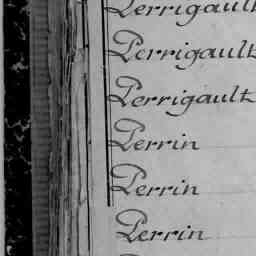 Perrigault
Perrigault
Perrigault
Perrin
Perrin
Perrin